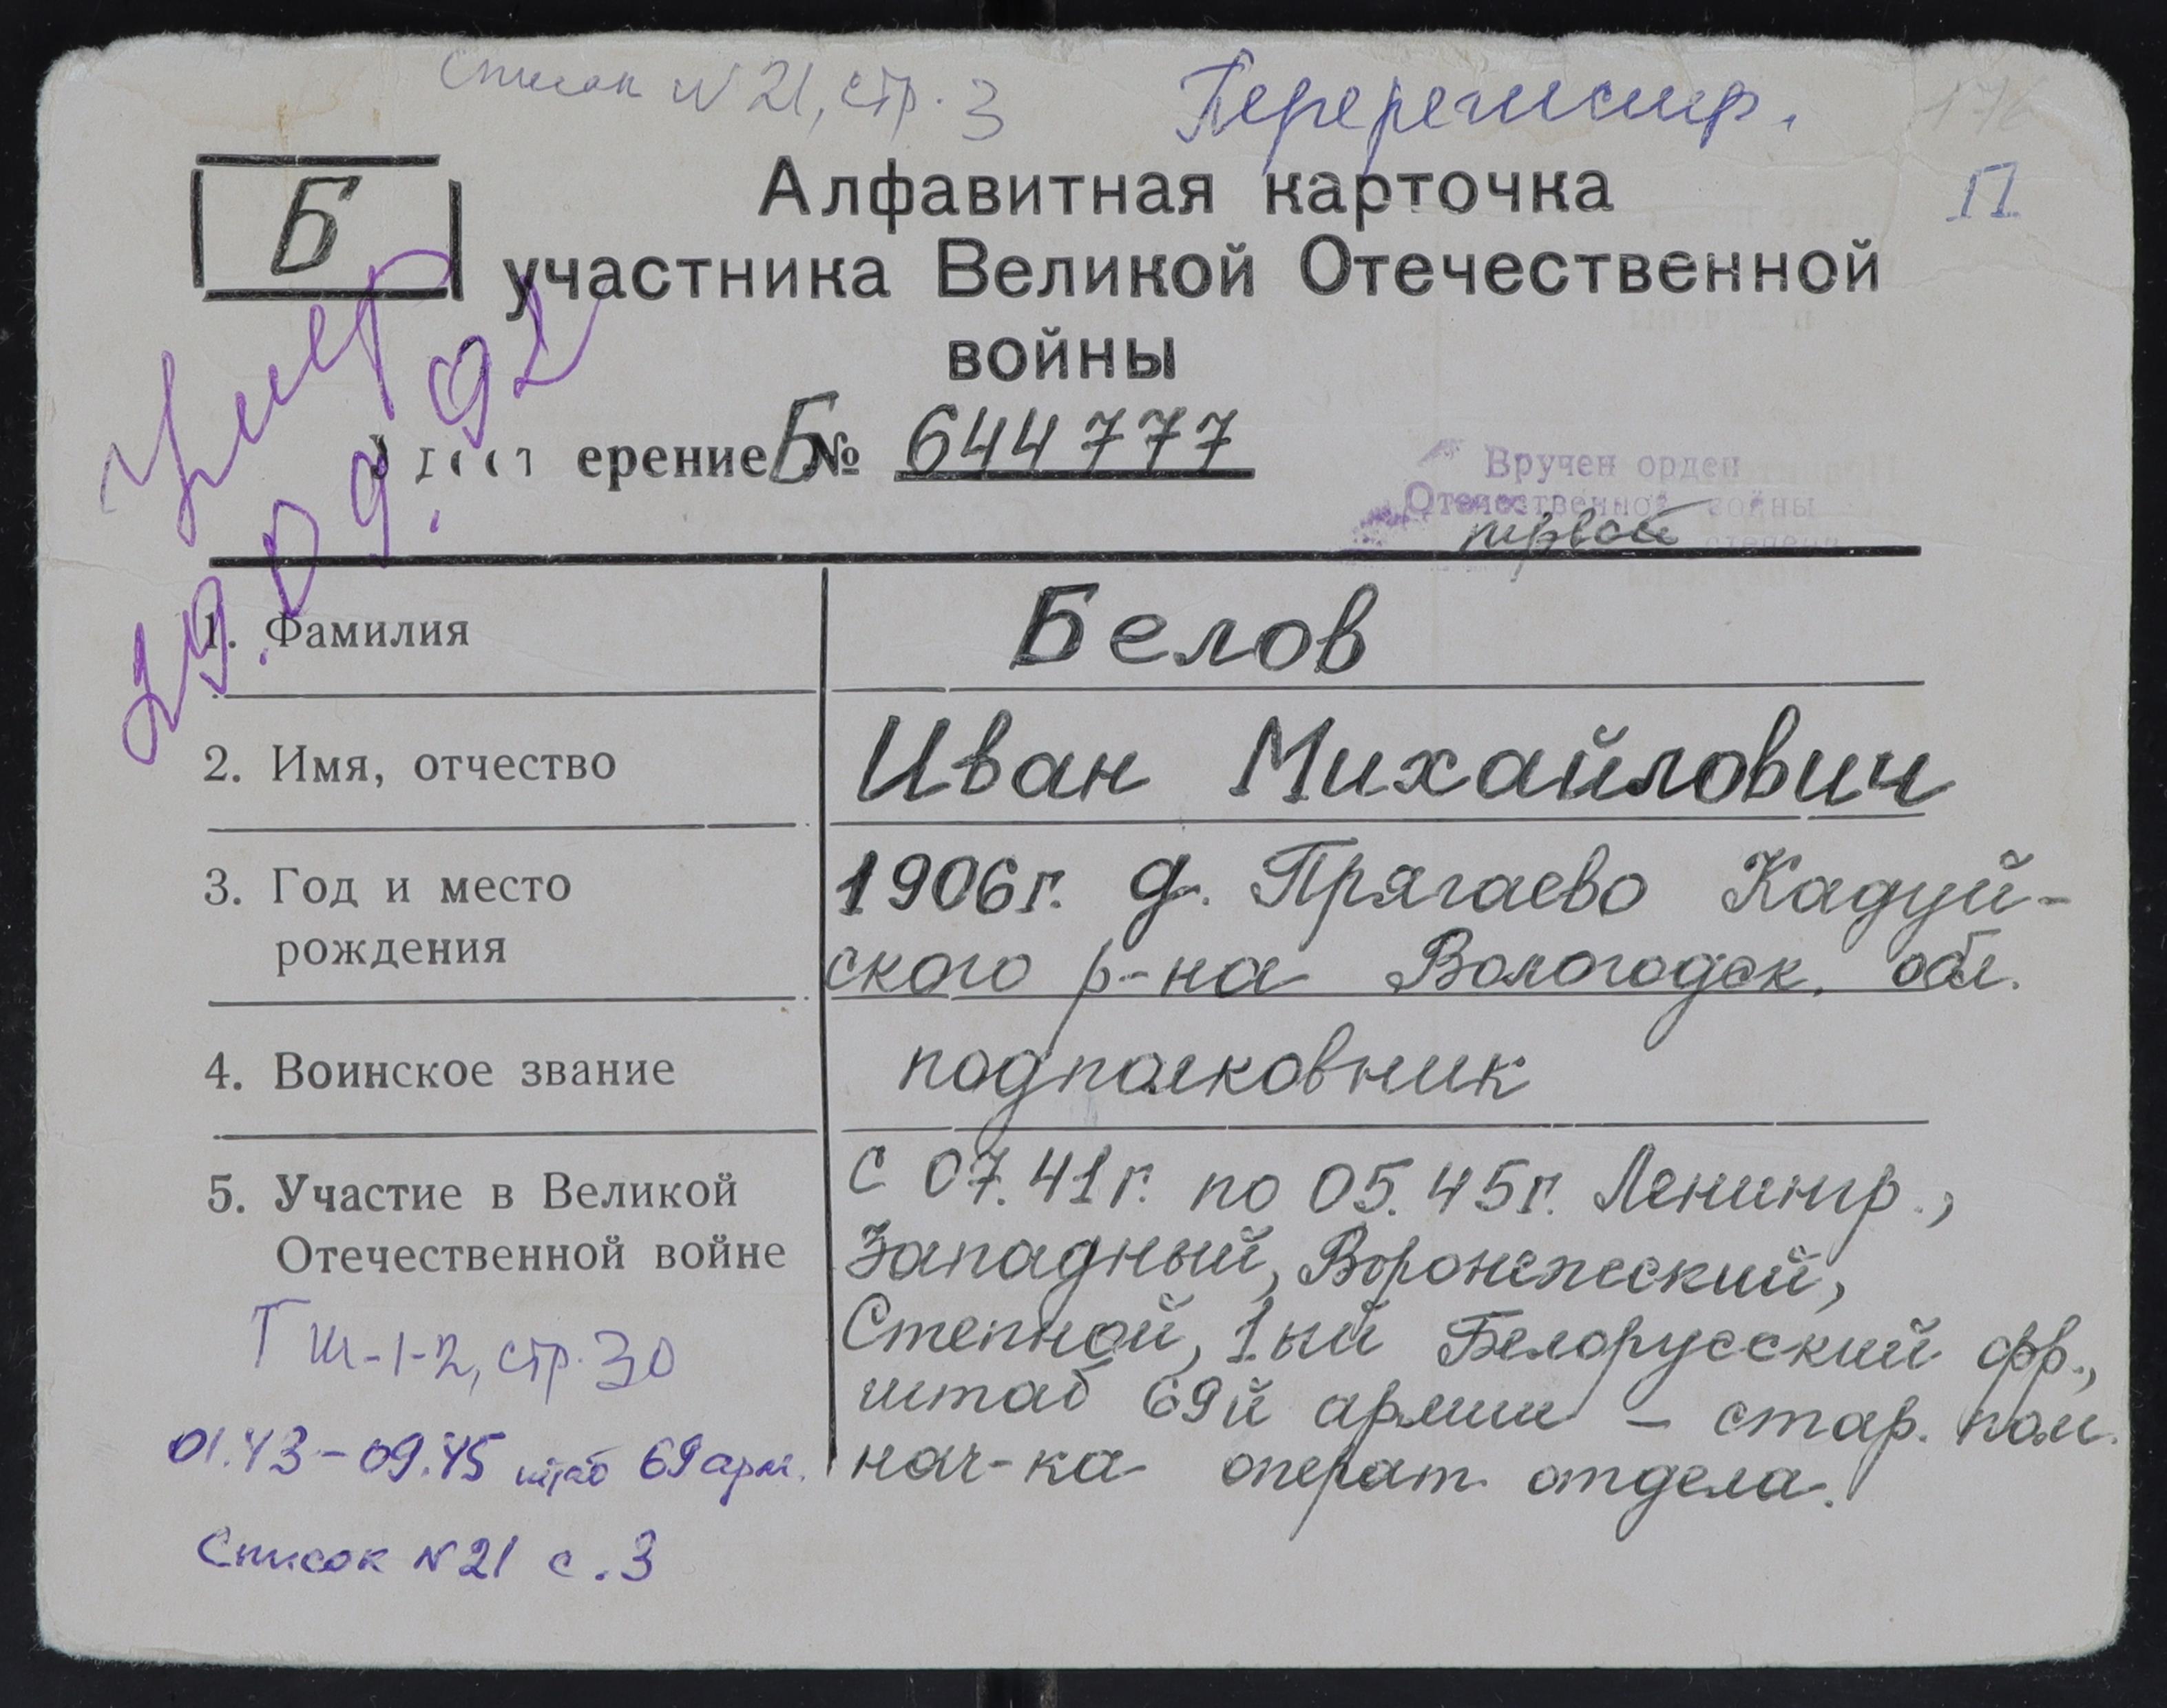 Список N 21, стр. 3
Перерегистр.
П
Б
Алфавитная карточка
участника Великой Отечественной
войны
ерение Б№ 644777
Вручен орден
Отечественной войны
первой степени
умер
29.09.92
1. Фамилия
Белов
2. Имя, отчество
Иван Михайлович
3. Год и место
рождения
1906г. д. Прягаево Кадуй-
ского р-на Вологодск. обл.
4. Воинское звание
подполковник
5. Участие в Великой
Отечественной войне
с 07.41г. по 05.45г. Ленингр.,
Западный, Воронежский,
Степной, 1ый Белорусский фр.,
штаб 69й армии – стар. пом.
нач-ка операт. отдела.
ГШ-1-2, стр. 30
01.43-09.45 штаб 69 арм.
Список N 21 с. 3